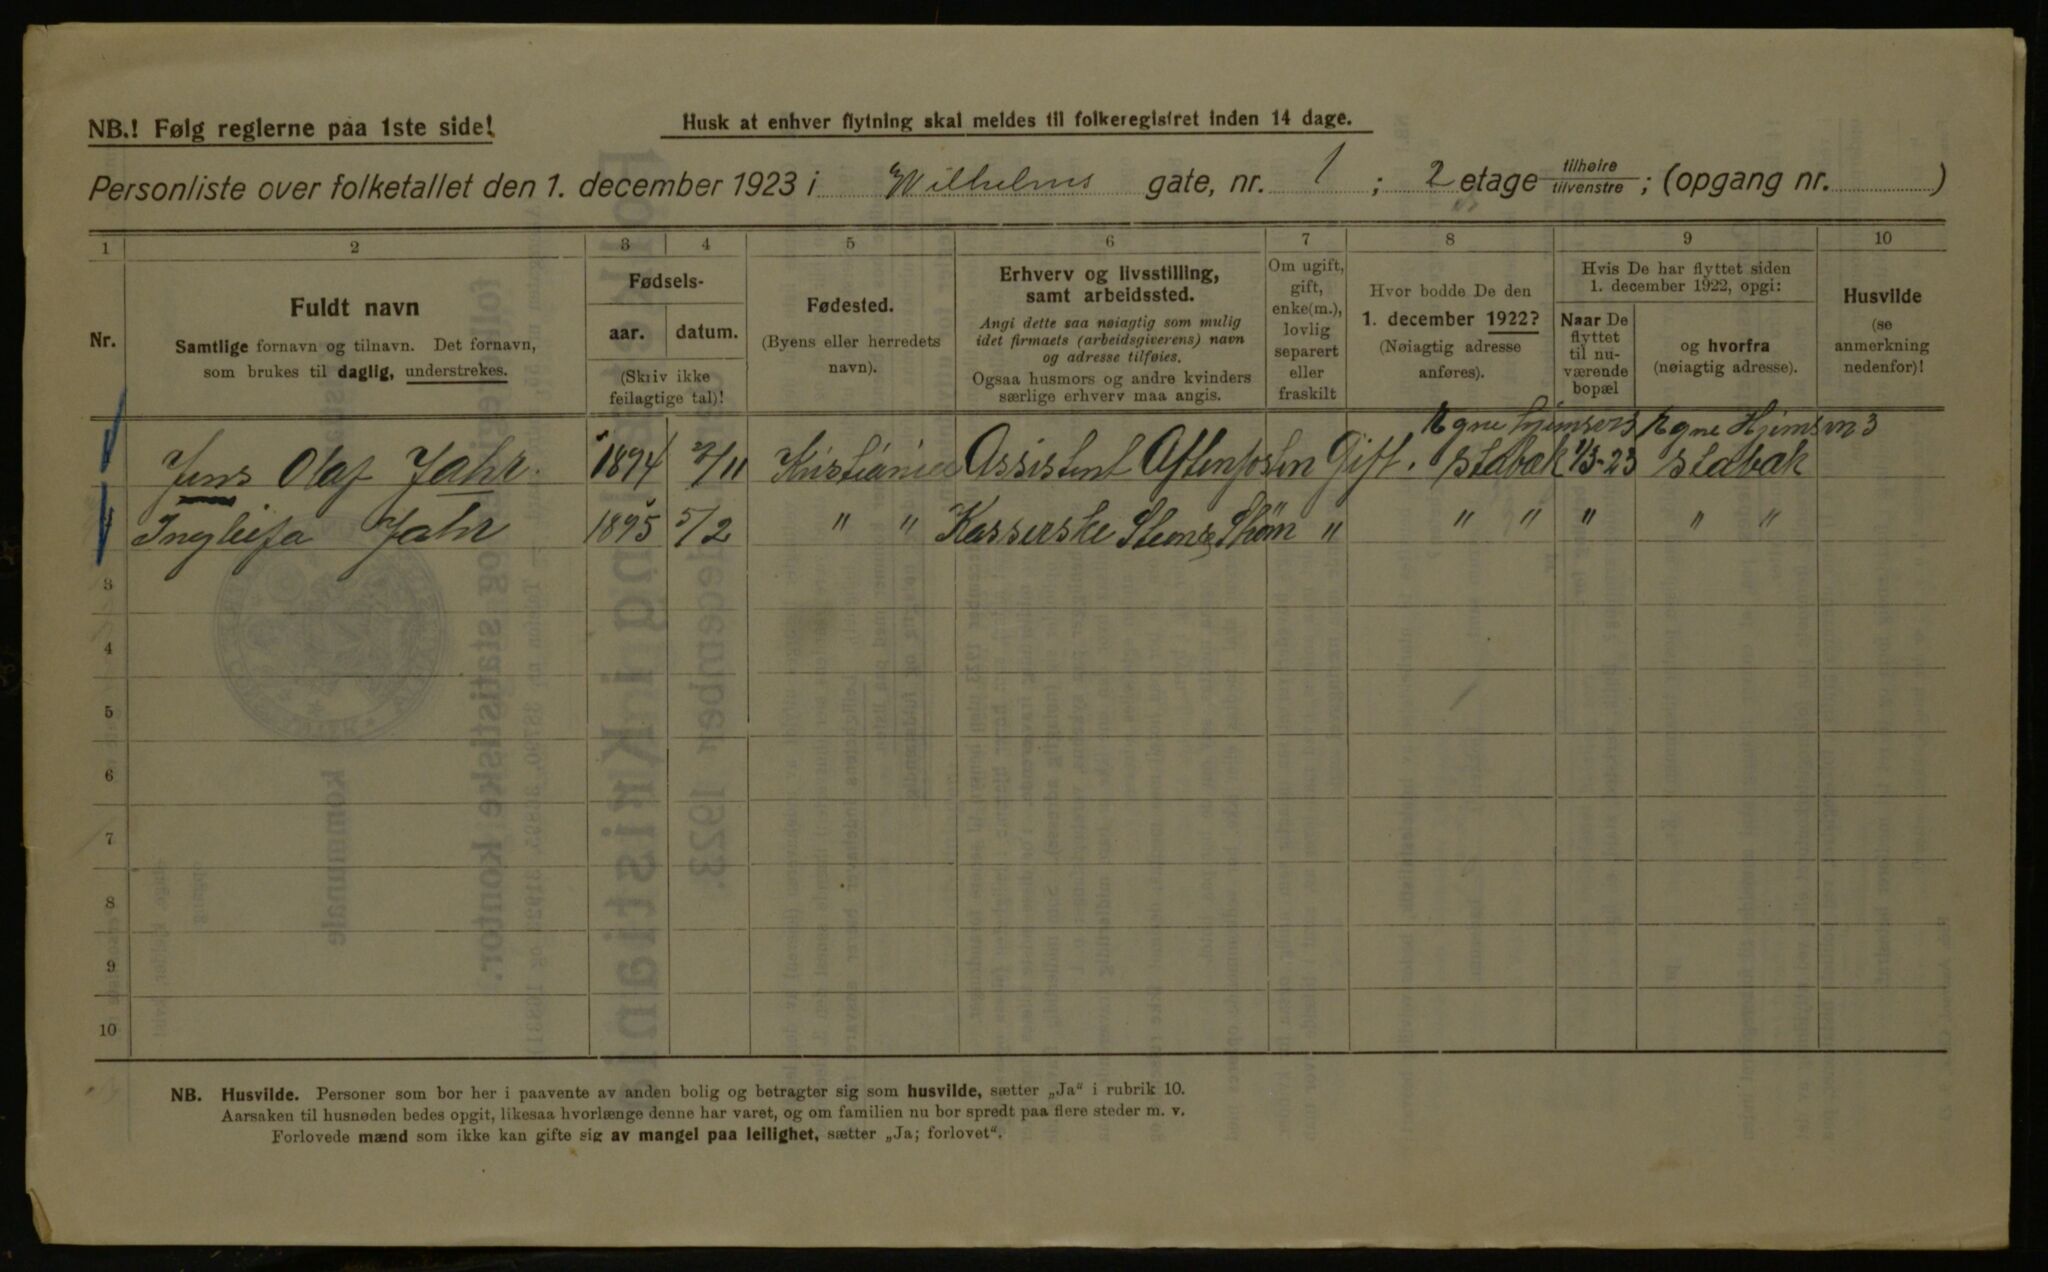 NB.! Følg reglerne paa 1ste side!
Husk at enhver flytning skal meldes til folkeregistret inden 14 dage.
Personliste over folketallet den 1. december 1923 i Wilhelms gate, nr. 1 ; 2 etage tilhøire/tilvenstre ; (opgang nr. )
1 2 3 4 5 6 7 8 9 10
Nr.
Fuldt navn
Samtlige fornavn og tilnavn. Det fornavn,
som brukes til daglig, understrekes.
Fødsels-
aar. datum.
(Skriv ikke
feilagtige tal)!
Fødested.
(Byens eller herredets
navn).
Erhverv og livsstilling,
samt arbeidssted.
Angi dette saa nøiagtig som mulig
idet firmaets (arbeidsgiverens) navn
og adresse tilføies.
Ogsaa husmors og andre kvinders
særlige erhverv maa angis.
Om ugift,
gift,
enke(m.),
lovlig
separert
eller
fraskilt
Hvor bodde De den
1. december 1922?
(Nøiagtig adresse
anføres).
Hvis De har flyttet siden
1. december 1922, opgi:
Naar De
flyttet
til nu-
værende
bopæl
og hvorfra
(nøiagtig adresse).
Husvilde
(se
anmerkning
nedenfor)!
Jens Olaf Jahr. 1894 2/11 Kristiania Assistent Aftenposten Gift. Stabæk 1/3-23 Stabæk
Jahr 1895 5/2 " " Kasserske " " " " " "
3
4
5
6
7
8
9
10
NB. Husvilde. Personer som bor her i paavente av anden bolig og betragter sig som husvilde, sætter „Ja“ i rubrik 10.
Aarsaken til husnøden bedes opgit, likesaa hvorlænge denne har varet, og om familien nu bor spredt paa flere steder m. v.
Forlovede mænd som ikke kan gifte sig av mangel paa leilighet, sætter „Ja; forlovet“.